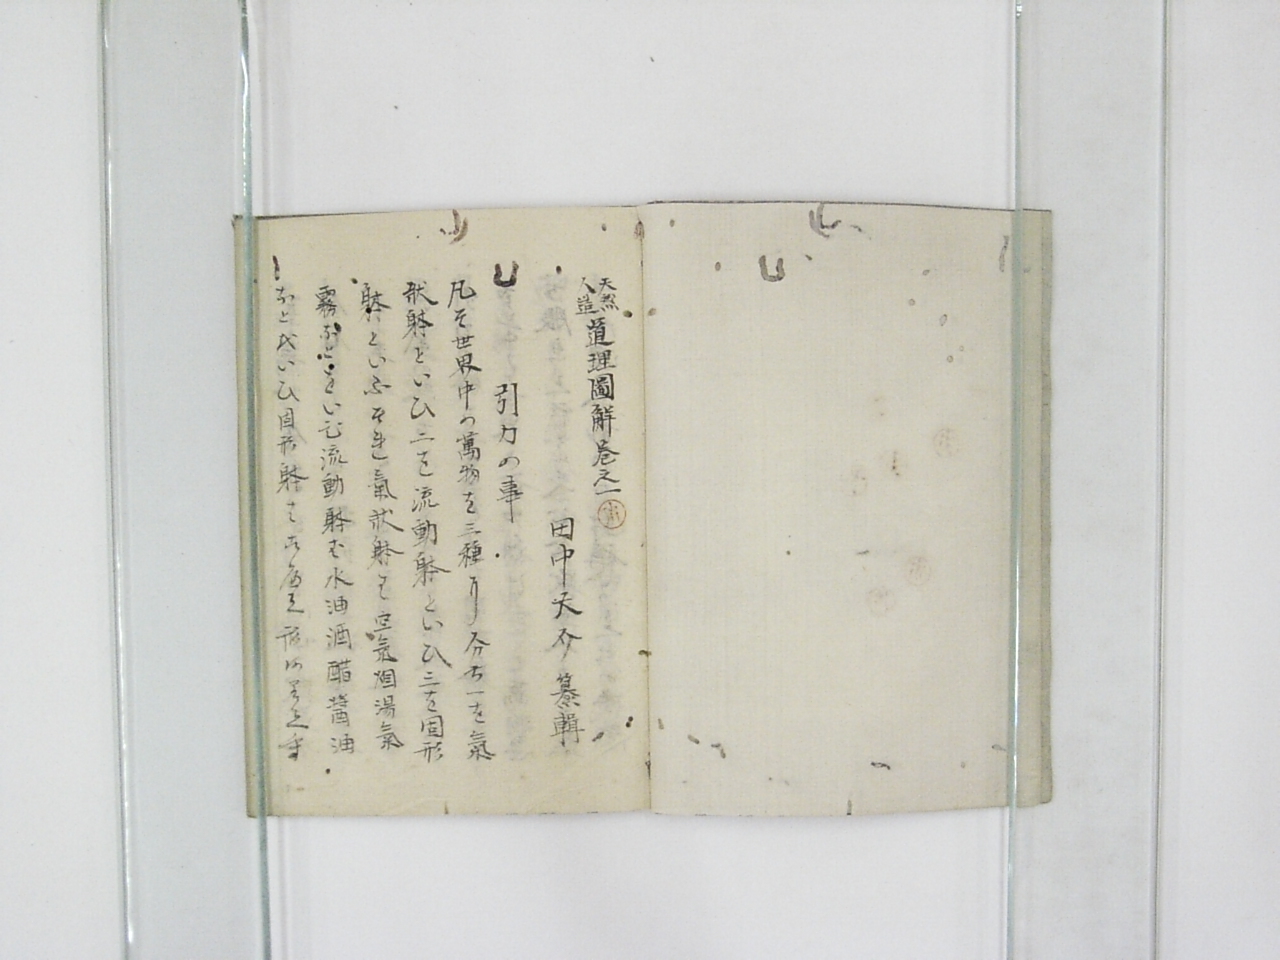 天然
人造
道理圖解卷之一
田中大介 纂輯
引力の事
凡そ世界中の萬物を三種に分ち一を氣
状躰といひ二を流動躰といひ三を固形
躰といふ其氣状躰は空氣烟湯氣
霧などをいひ流動躰は水油酒醋醤油
などをいひ固形躰は